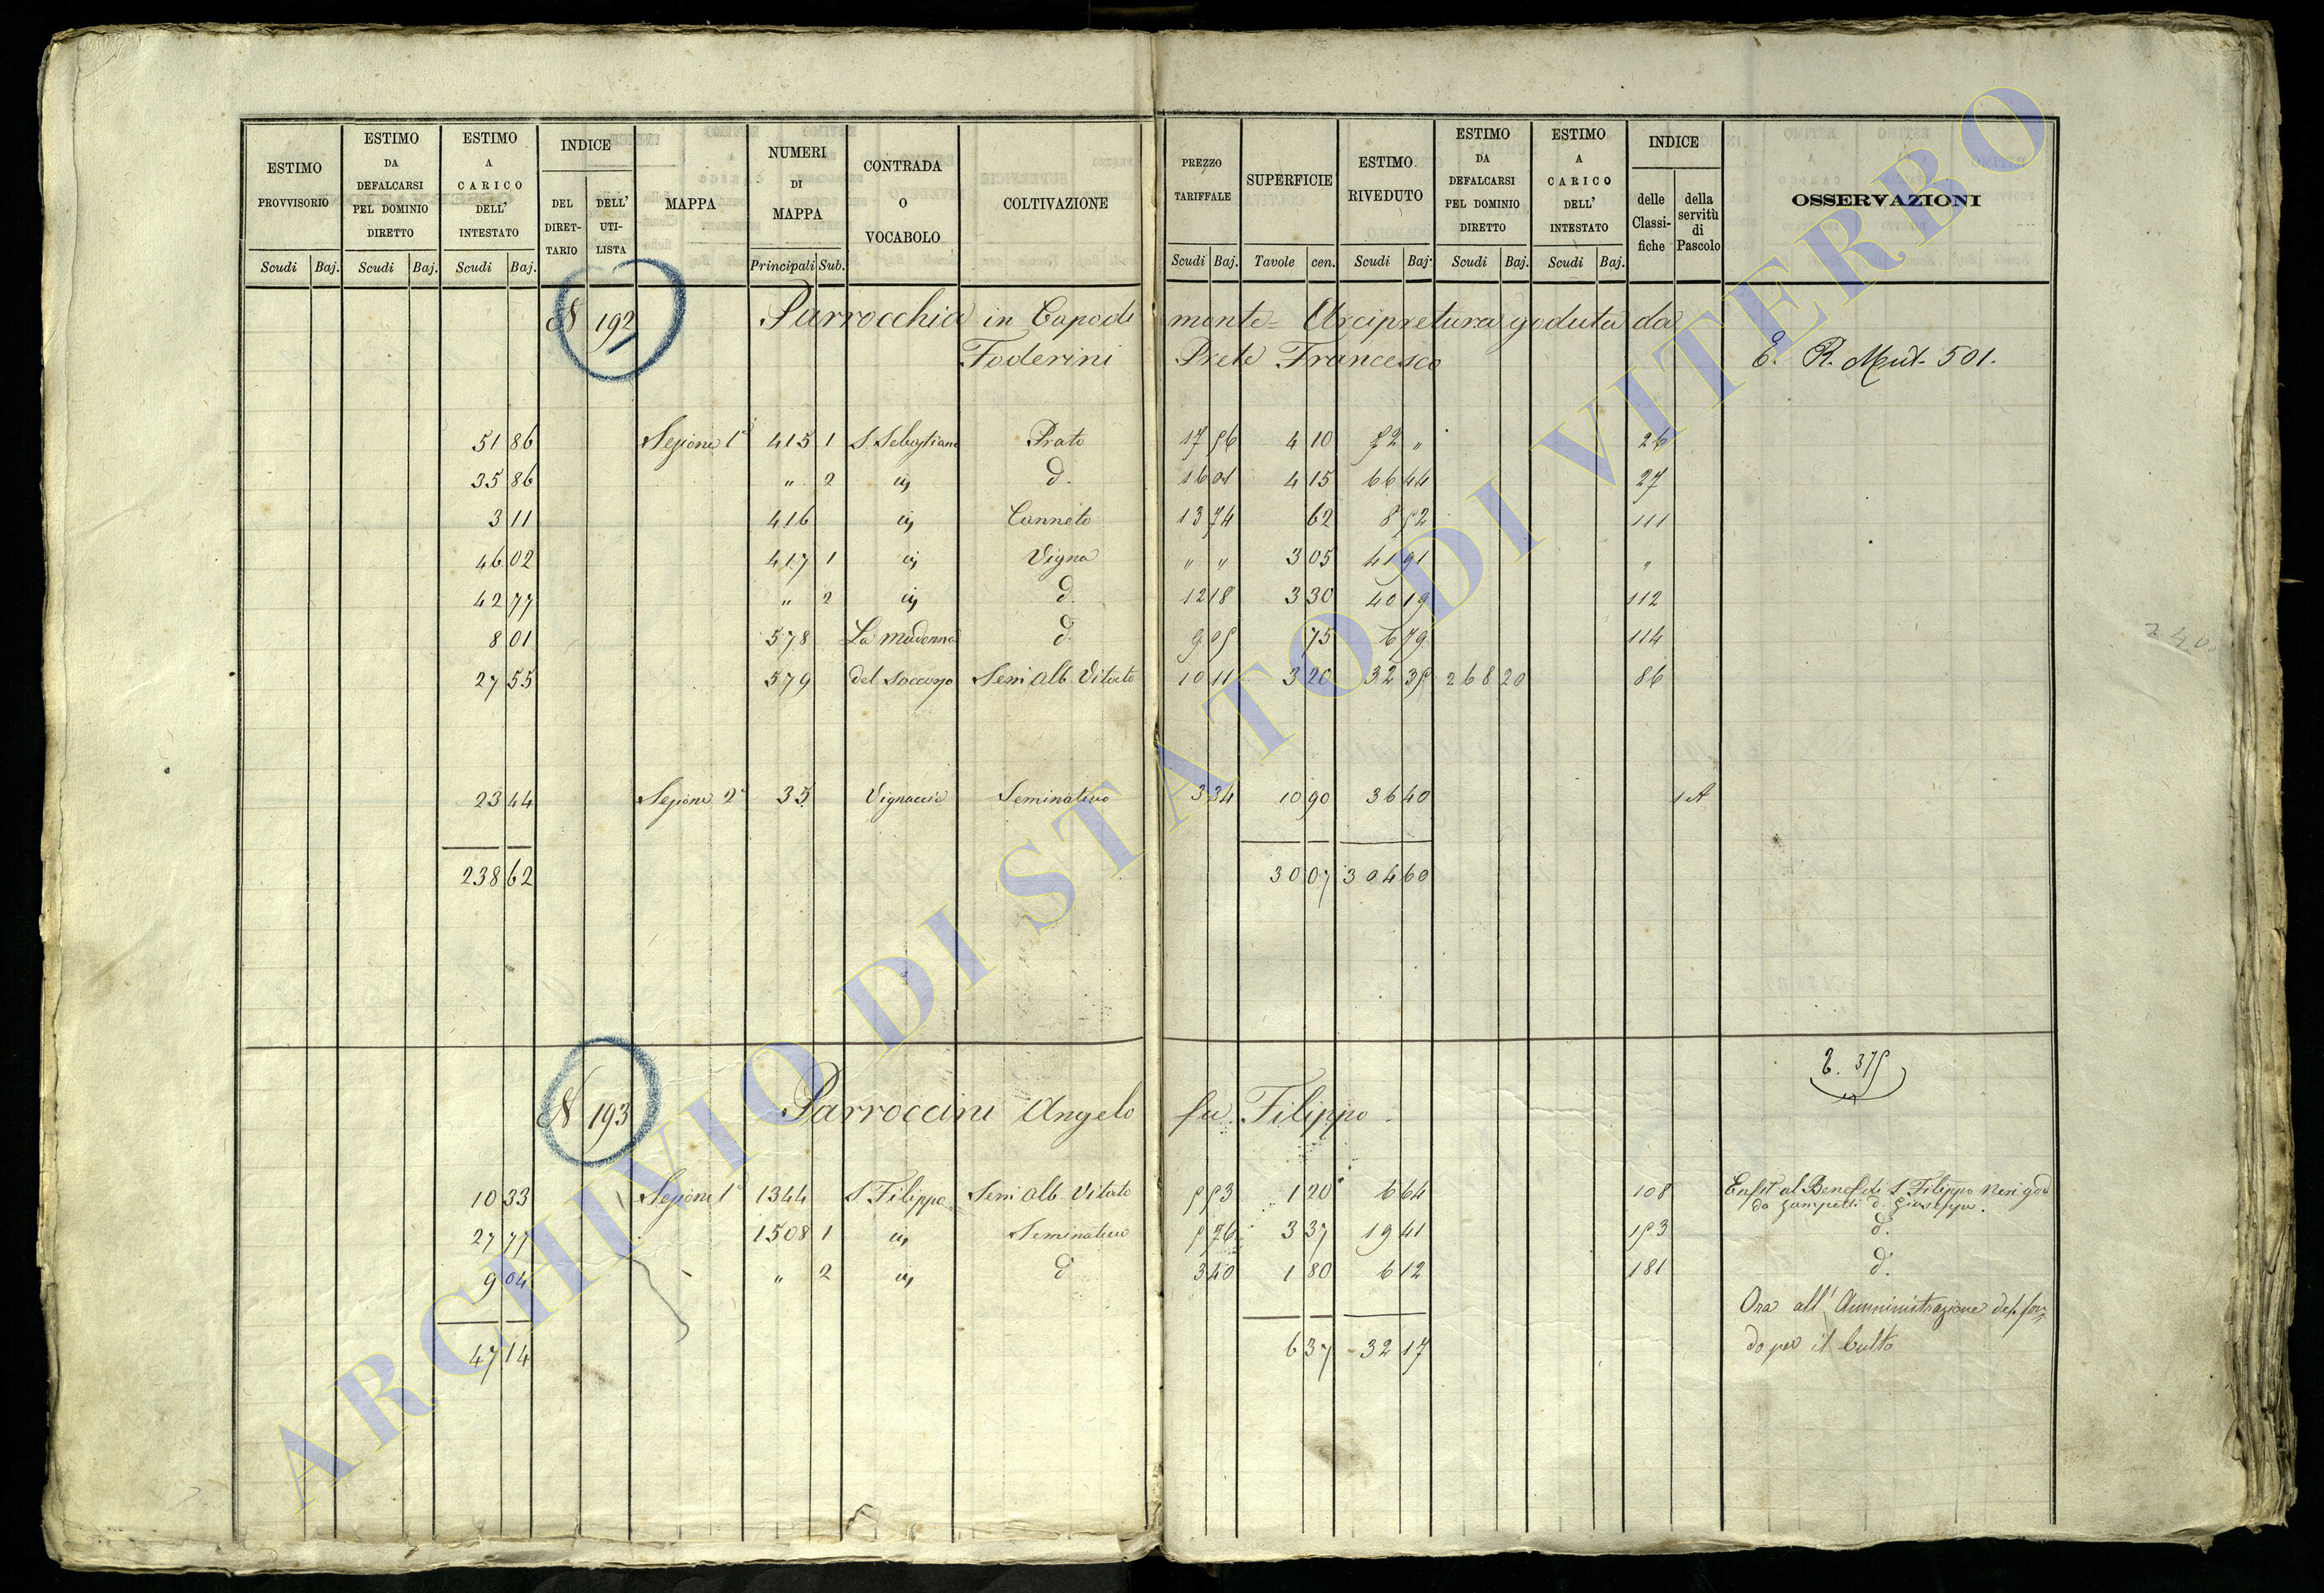 ESTIMO PROVVISORIO
Scudi Baj.
ESTIMO DA DEFALCARSI PEL DOMINIO DIRETTO
Scudi Baj.
ESTIMO A CARICO DELL' INTESTATO
Scudi Baj.
INDICE
DEL DIRET-TARIO
DELL' UTI-LISTA
MAPPA
NUMERI DI MAPPA
Principali Sub.
CONTRADA O VOCABOLO
COLTIVAZIONE
PREZZO TARIFFALE
Scudi Baj.
SUPERFICIE
Tavole cen.
ESTIMO RIVEDUTO
Scudi Baj.
ESTIMO DA DEFALCARSI PEL DOMINIO DIRETTO
Scudi Baj.
ESTIMO A CARICO DELL' INTESTATO
Scudi Baj.
INDICE
delle Classi-fiche
della servitù di Pascolo
OSSERVAZIONI
N 192 Parrocchia in Capodi monte = Arcipretura goduta da
Foderini Prete Francesco E. R. Mut. 501.
51 86 Sezione 1ª 415 1 S. Sebastiano Prato 17 56 4 10 72 " 26
35 86 " 2 id. 16 01 4 15 66 44 27
3 11 416 Canneto 13 74 62 8 52 111
46 02 417 1 Vigna " " 3 05 41 91 "
42 77 " 2 d. 12 18 3 30 40 19 112
8 01 578 La Madonna d. 9 05 75 6 79 114
27 55 579 del Soccorso Semi Alb. Vitato 10 11 3 20 32 35 268 20 86
23 44 Sezione 2ª 35 Vignaccie Seminativo 3 34 10 90 36 40 1 A
238 62 30 07 304 60
N 193 Parroccini Angelo fu Filippo
10 33 Sezione 1ª 1344 S. Filippo Semi Alb. Vitato 5 53 1 20 6 64 108 Enfit. al Benef. di S. Filippo Neri god. da Zampetti d. Giuseppe.
27 77 1508 1 Seminativo 5 76 3 37 19 41 153 d.
9 04 " 2 d 3 40 1 80 6 12 181 d.
Ora all' Amministrazione del fon-
do per il Culto
47 14 6 37 32 17
240
ARCHIVIO DI STATO DI VITERBO